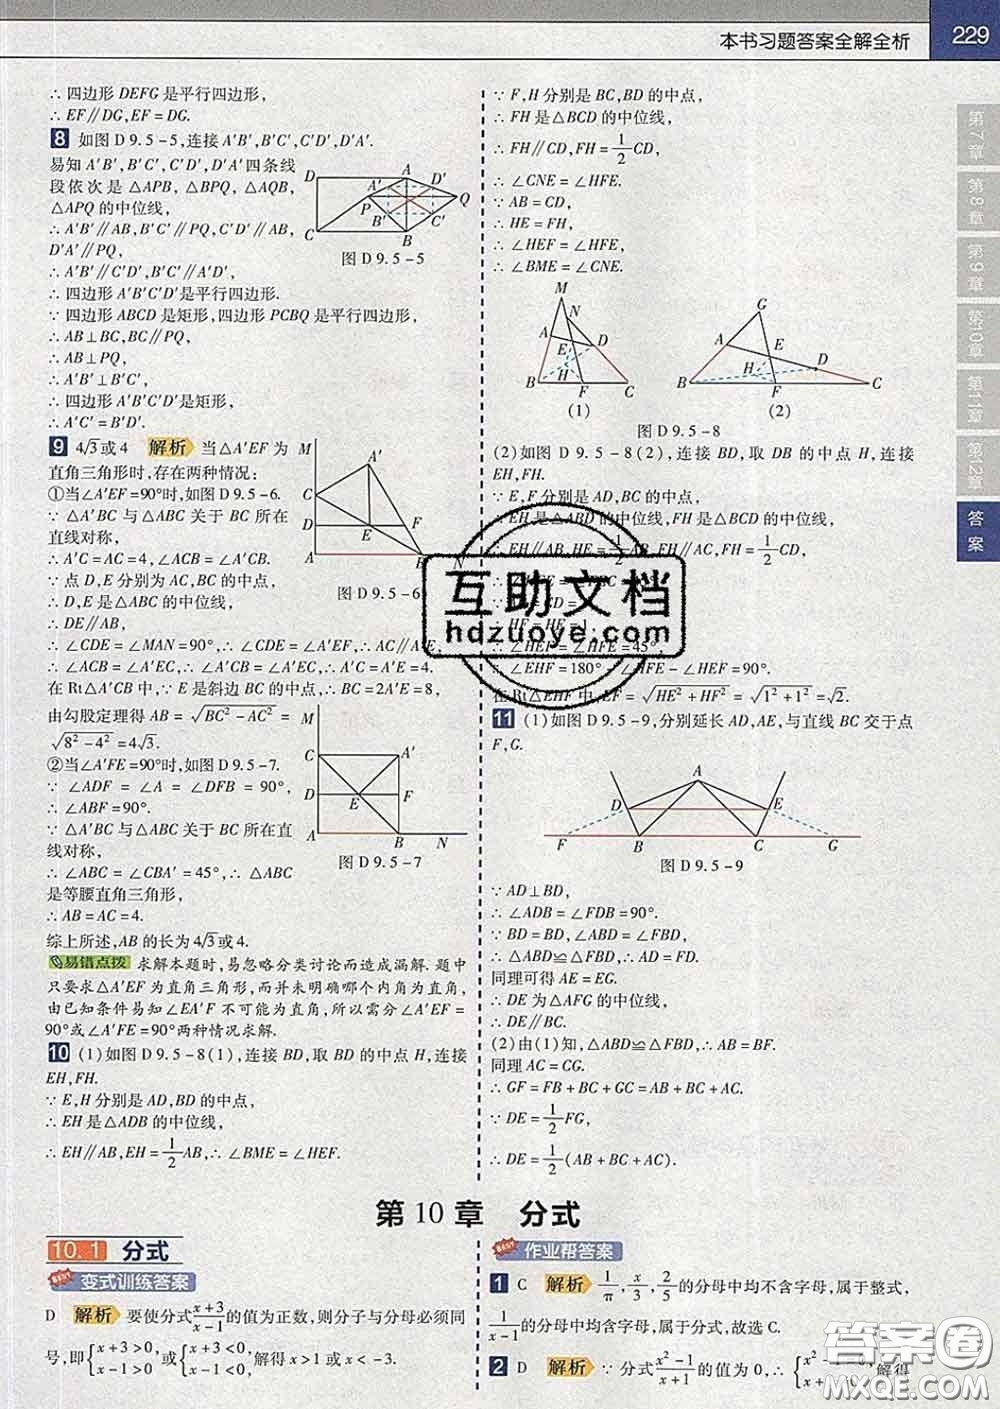 本书习题答案全解全析
229
∴ 四边形 DEFG 是平行四边形,
∴ EF∥DG,EF = DG.
8 如图 D 9.5-5,连接 A′B′,B′C′,C′D′,D′A′.
易知 A′B′,B′C′,C′D′,D′A′四条线
段依次是 △APB,△BPQ,△AQB,
△APQ 的中位线,
∴ A′B′∥AB,B′C′∥PQ,C′D′∥AB,
D′A′∥PQ,
∴ A′B′∥C′D′,B′C′∥A′D′,
∴ 四边形 A′B′C′D′是平行四边形.
∵ 四边形 ABCD 是矩形,四边形 PCBQ 是平行四边形,
∴ AB⊥BC,BC∥PQ,
∴ AB⊥PQ,
∴ A′B′⊥B′C′,
∴ 四边形 A′B′C′D′是矩形,
∴ A′C′ = B′D′.
D A A′ D′ P Q B′ C′ C B
图 D 9.5-5
9 4√3或 4 解析 当△A′EF 为
直角三角形时,存在两种情况:
①当∠A′EF = 90°时,如图 D 9.5-6.
∵ △A′BC 与△ABC 关于 BC 所在
直线对称,
∴ A′C = AC = 4,∠ACB = ∠A′CB.
∵ 点 D,E 分别为 AC,BC 的中点,
∴ D,E 是△ABC 的中位线,
∴ DE∥AB,
∴ ∠CDE = ∠MAN = 90°,∴ ∠CDE = ∠A′EF,∴ AC∥A′E,
∴ ∠ACB = ∠A′EC,∴ ∠A′CB = ∠A′EC,∴ A′C = A′E = 4.
在 Rt△A′CB 中,∵ E 是斜边 BC 的中点,∴ BC = 2A′E = 8,
由勾股定理得 AB = √(BC² - AC²) =
√(8² - 4²) = 4√3.
②当∠A′FE = 90°时,如图 D 9.5-7.
∵ ∠ADF = ∠A = ∠DFB = 90°,
∴ ∠ABF = 90°.
∵ △A′BC 与△ABC 关于 BC 所在直
线对称,
∴ ∠ABC = ∠CBA′ = 45°,∴ △ABC
是等腰直角三角形,
∴ AB = AC = 4.
综上所述,AB 的长为 4√3或 4.
M A′ C D E F A B N
图 D 9.5-6
M C A′ D E F A B N
图 D 9.5-7
易错点拨 求解本题时,易忽略分类讨论而造成漏解.题中
只要求△A′EF 为直角三角形,而并未明确哪个内角为直角,
由已知条件易知∠EA′F 不可能为直角,所以需分∠A′EF =
90°或∠A′FE = 90°两种情况求解.
10 (1)如图 D 9.5-8(1),连接 BD,取 BD 的中点 H,连接
EH,FH.
∵ E,H 分别是 AD,BD 的中点,
∴ EH 是△ADB 的中位线,
∴ EH∥AB,EH = 1/2 AB,∴ ∠BME = ∠HEF.
∵ F,H 分别是 BC,BD 的中点,
∴ FH 是△BCD 的中位线,
∴ FH∥CD,FH = 1/2 CD,
∴ ∠CNE = ∠HFE.
∵ AB = CD,
∴ HE = FH,
∴ ∠HEF = ∠HFE,
∴ ∠BME = ∠CNE.
M N A E D H B F C
(1)
G A E D H B F C
(2)
图 D 9.5-8
(2)如图 D 9.5-8(2),连接 BD,取 DB 的中点 H,连接
EH,FH.
∵ E,F 分别是 AD,BC 的中点,
∴ EH 是△ABD 的中位线,FH 是△BCD 的中位线,
∴ EH∥AB,HE = 1/2 AB,FH∥AC,FH = 1/2 CD,
∴ HF = HE = 1,
∴ ∠HEF = ∠HFE = 45°,
∴ ∠EHF = 180° - ∠HFE - ∠HEF = 90°.
在 Rt△EHF 中,EF = √(HE² + HF²) = √(1² + 1²) = √2.
11 (1)如图 D 9.5-9,分别延长 AD,AE,与直线 BC 交于点
F,G.
A D E F B C G
图 D 9.5-9
∵ AD⊥BD,
∴ ∠ADB = ∠FDB = 90°.
∵ BD = BD,∠ABD = ∠FBD,
∴ △ABD≌△FBD,∴ AD = FD.
同理可得 AE = EG.
∴ DE 为△AFG 的中位线,
∴ DE∥BC.
(2)由(1)知,△ABD≌△FBD,∴ AB = BF.
同理 AC = CG.
∴ GF = FB + BC + GC = AB + BC + AC.
∵ DE = 1/2 FG,
∴ DE = 1/2 (AB + BC + AC).
第 10 章 分式
10.1 分式
变式训练答案
D 解析 要使分式(x+3)/(x-1)的值为正数,则分子与分母必须同
号,即{x+3>0, x-1>0 或{x+3<0, x-1<0, 解得 x>1 或 x<-3.
作业帮答案
1 C 解析 1/π, x/3, 2/5 的分母中均不含字母,属于整式,
1/(x-1)的分母中均含字母,属于分式,故选 C.
2 D 解析 ∵ 分式(x²-1)/(x+1)的值为 0,∴
解得
第7章
第8章
第9章
第10章
第11章
第12章
答案
互助文档
hdzuoye.com
答案圈
MXQE.COM